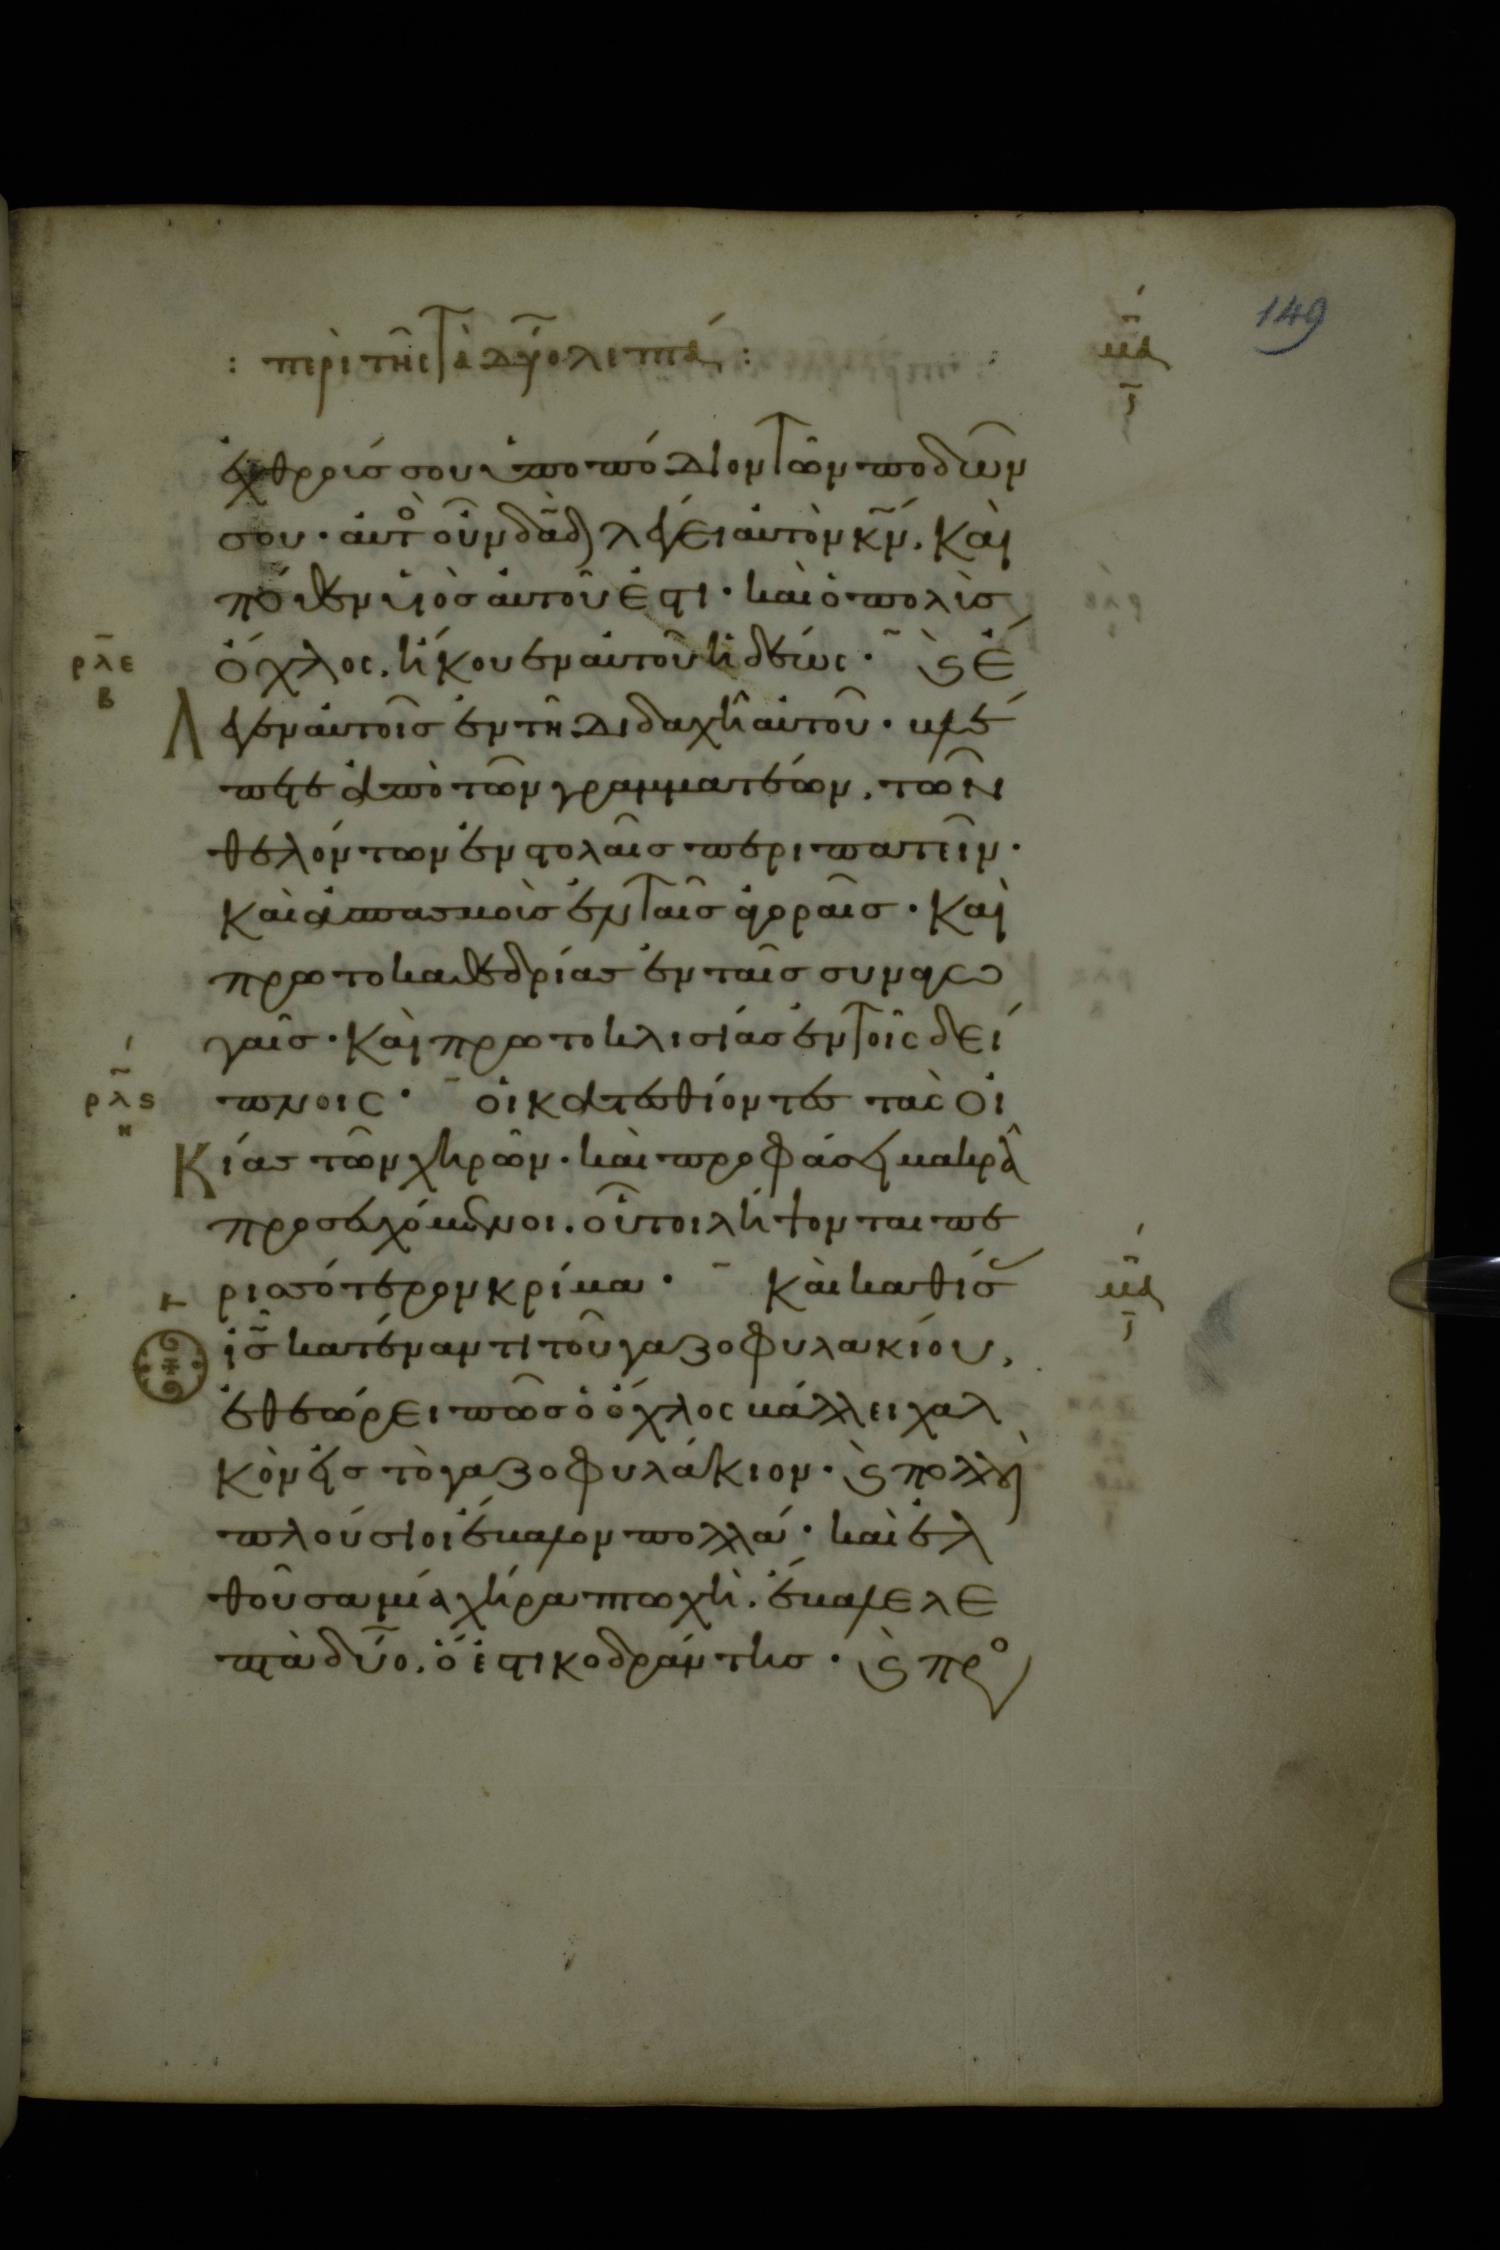 149
: περὶ τῆς τὰ δύο λεπτά :
μα
ἐχθρούς σου ὑποπόδιον τῶν ποδῶν
σου · αὐτὸ οὖν δᾶδ λέγει αὐτὸν κ̅ν̅. καὶ
πόθεν υἱὸσ αὐτοῦ ἐστι · καὶ ὁ πολὺσ
ρλε
β
ὄχλος. ἤκουεν αὐτοῦ ἡδέως · ϗ ἔ
λεγεν αὐτοῖσ ἐν τῆ διδαχῆ αὐτοῦ · βλέ
πετε ἀπὸ τῶν γραμματέων. τῶν
θελόντων ἐν στολαῖσ περιπατεῖν ·
καὶ ἀσπασμοὺσ ἐν ταῖσ ἀγοραῖσ · καὶ
πρωτοκαθεδρίασ ἐν ταῖσ συναγω
γαῖσ · καὶ πρωτοκλισίασ ἐν τοῖς δεί
ρλς
η
πνοις · οἱ κατεσθίοντεσ τὰς οἰ
κίασ τῶν χηρῶν · καὶ προφάσει μακρὰ
προσευχόμενοι. οὗτοι λήψονται πε
ρισσότερον κρίμα · καὶ καθίσασ
μα
ὁ ι̅σ̅ κατέναντι τοῦ γαζοφυλακίου,
ἐθεώρει πῶσ ὁ ὄχλος βάλλει χαλ
κὸν εἰσ τὸ γαζοφυλάκιον · ϗ πολλοὶ
πλούσιοι ἔβαλον πολλά · καὶ ἐλ
θοῦσα μία χήρα πτωχὴ. ἔβαλε λε
πτὰ δύο. ὅ ἐστι κοδράντησ · ϗ προ